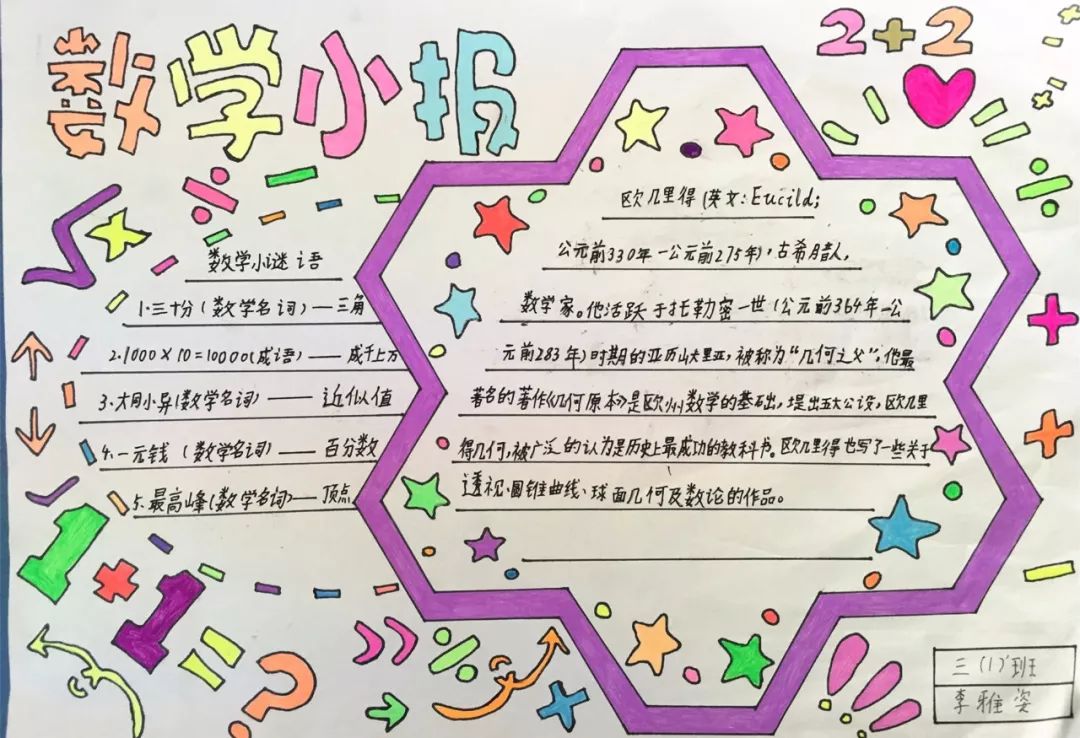 数学小报
2+2
数学小谜语
1.三十分(数学名词)——三角
2.1000×10=10000(成语)——成千上万
3.大同小异(数学名词)——近似值
4.一元钱(数学名词)——百分数
5.最高峰(数学名词)——顶点
欧几里得(英文:Eucild;
公元前330年—公元前275年),古希腊人,
数学家。他活跃于托勒密一世(公元前364年—公
元前283年)时期的亚历山大里亚,被称为“几何之父”,他最
著名的著作《几何原本》是欧州数学的基础,堤出五大公设,欧几里
得几何,被广泛的认为是历史上最成功的教科书。欧几里得也写了一些关于
透视、圆锥曲线、球面几何及数论的作品。
1×1=?
三(1)班
李雅姿